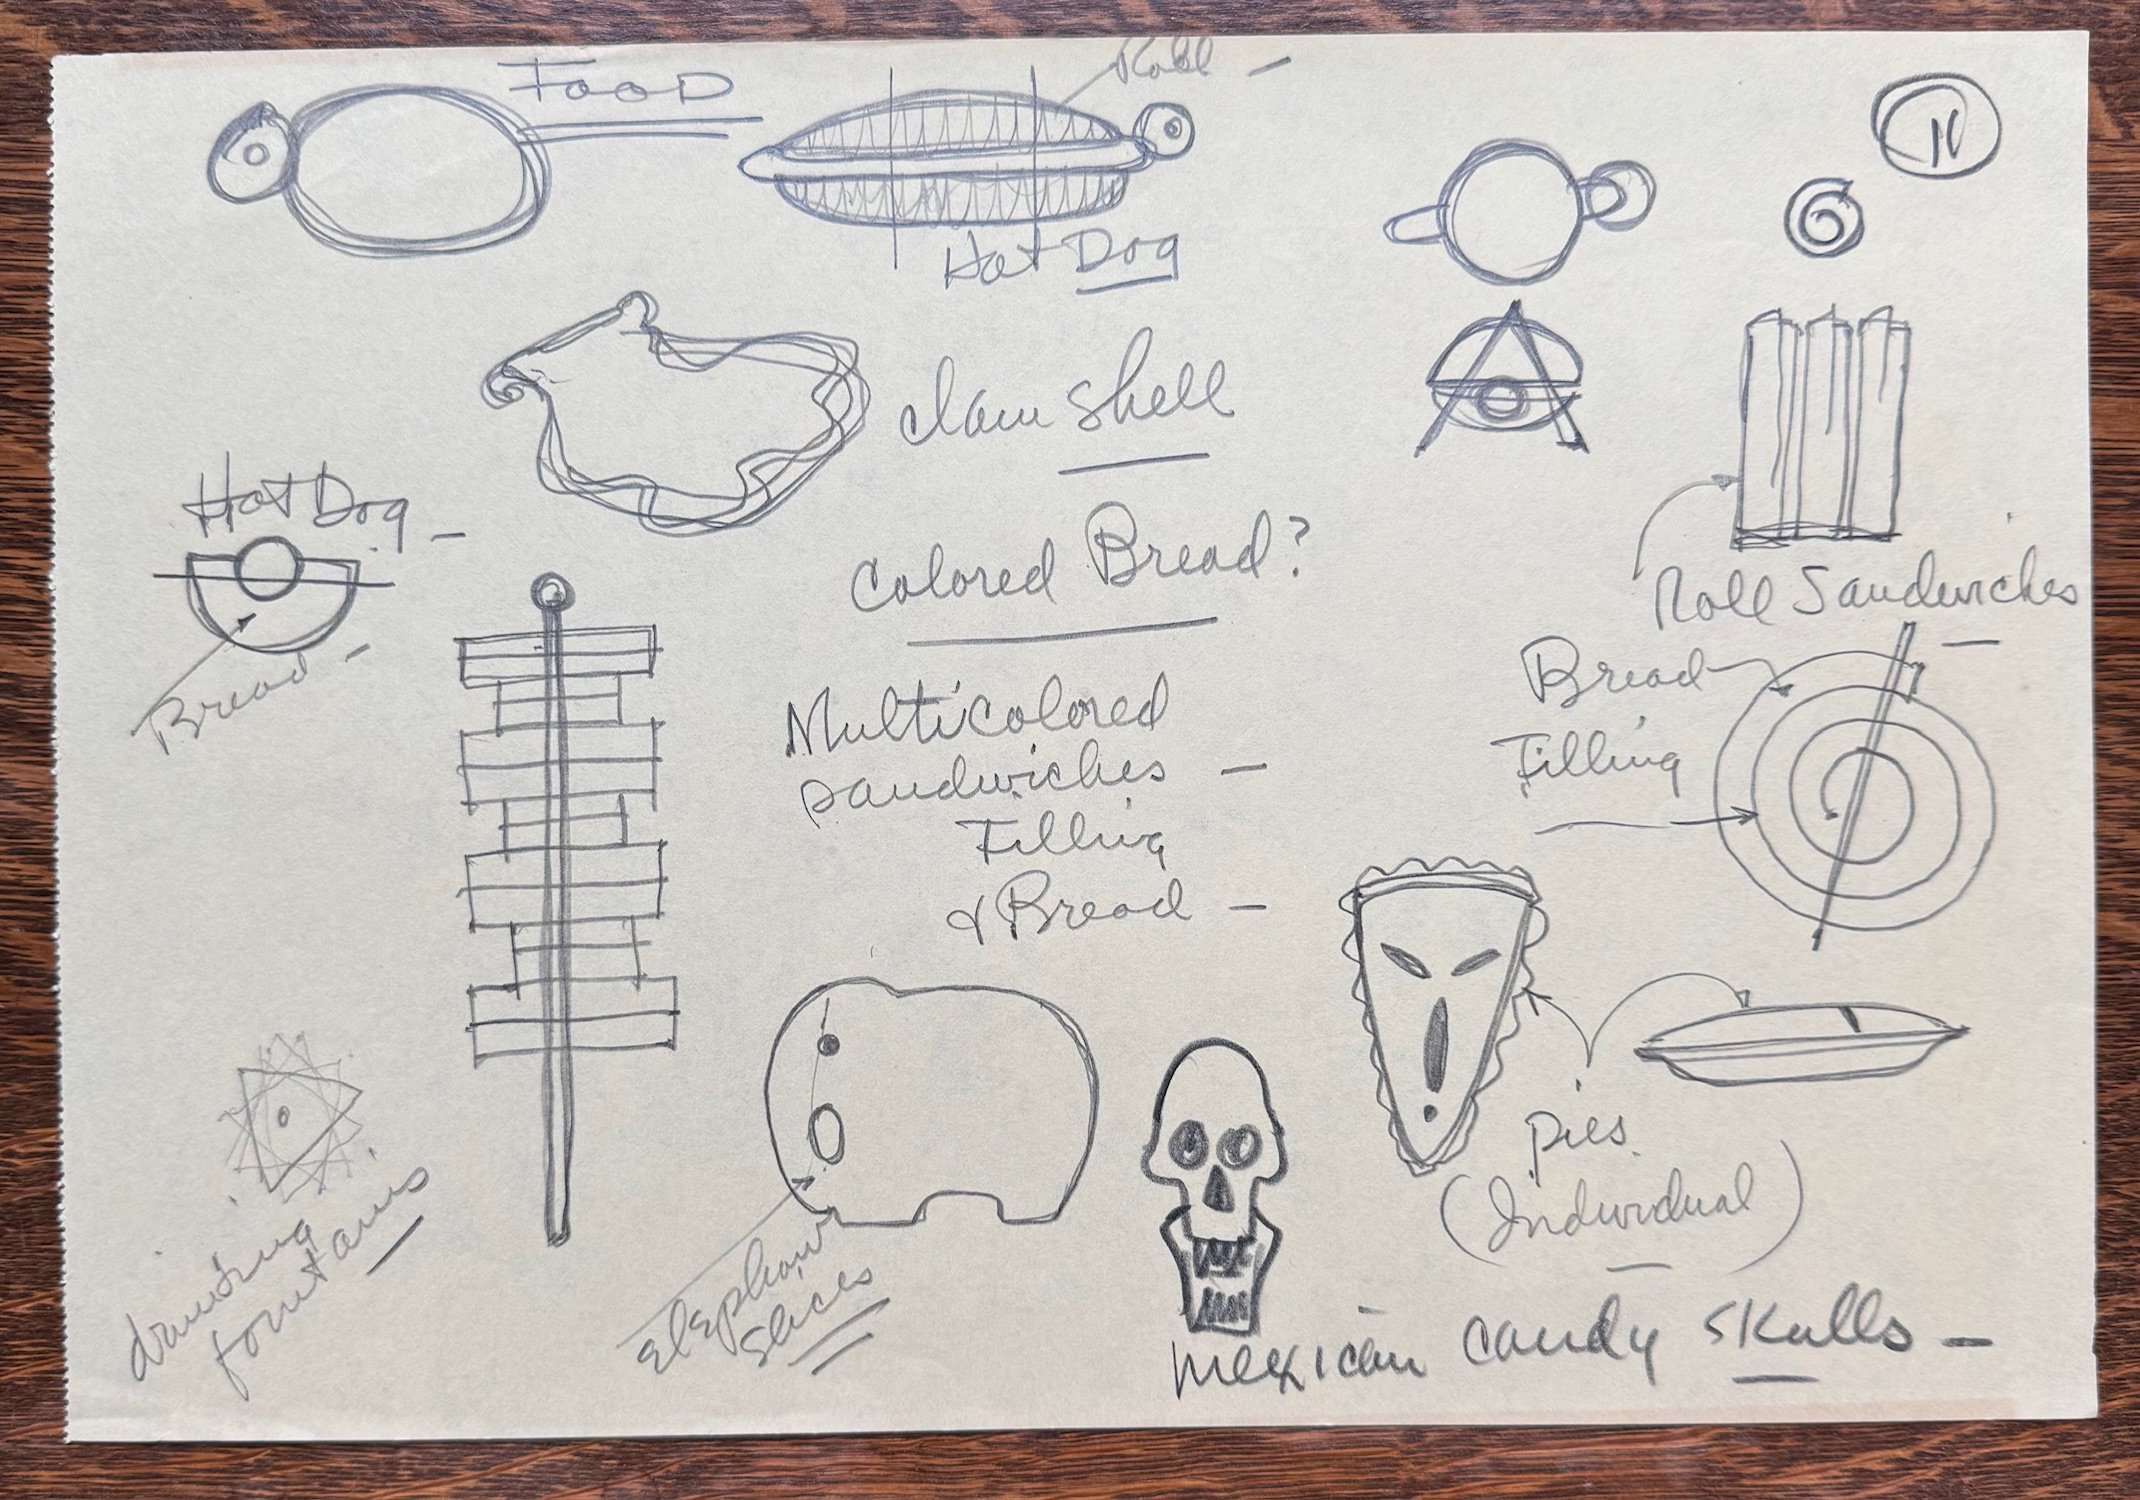 FOOD
Roll -
Hot Dog
clam shell
Hot Dog -
Bread -
Colored Bread?
Roll Sandwiches -
Bread
Filling
Multicolored
sandwiches -
Filling
& Bread -
pies
(Individual)
drinking
fountains
Elephant
slices
Mexican candy skulls -